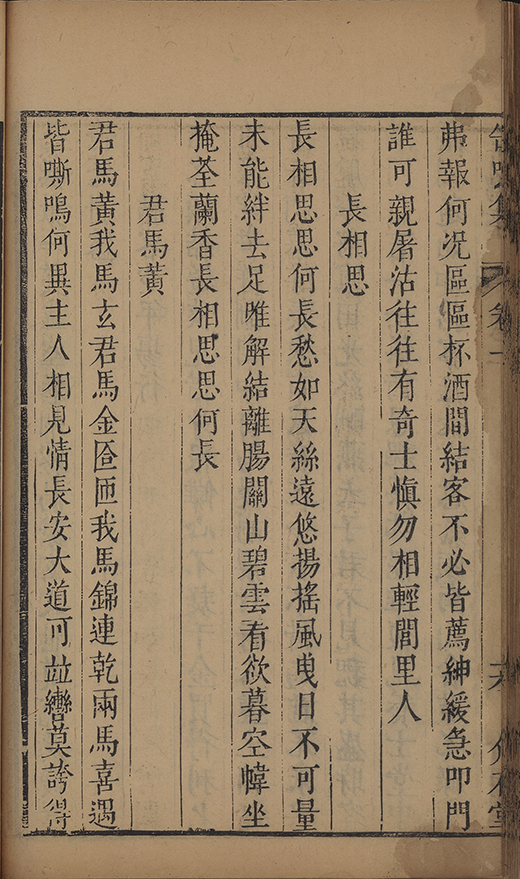 弗報何况區區杯酒間結客不必皆薦紳緩急叩門
誰可親屠沽往往有奇士愼勿相輕閭里人
長相思
長相思思何長愁如天絲遠悠揚搖風曳日不可量
未能絆去足唯解結離腸關山碧雲看欲暮空幃坐
掩荃蘭香長相思思何長
君馬黃
君馬黃我馬玄君馬金匼匝我馬錦連乾兩馬喜遇
皆嘶鳴何異主人相見情長安大道可並轡莫誇得